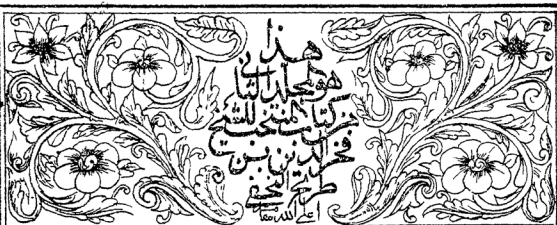 هذا
هو المجلد الثانى
من كتاب المنتخب للشيخ
فخر الدين بن
طريح النجفى
اعلى الله مقامه